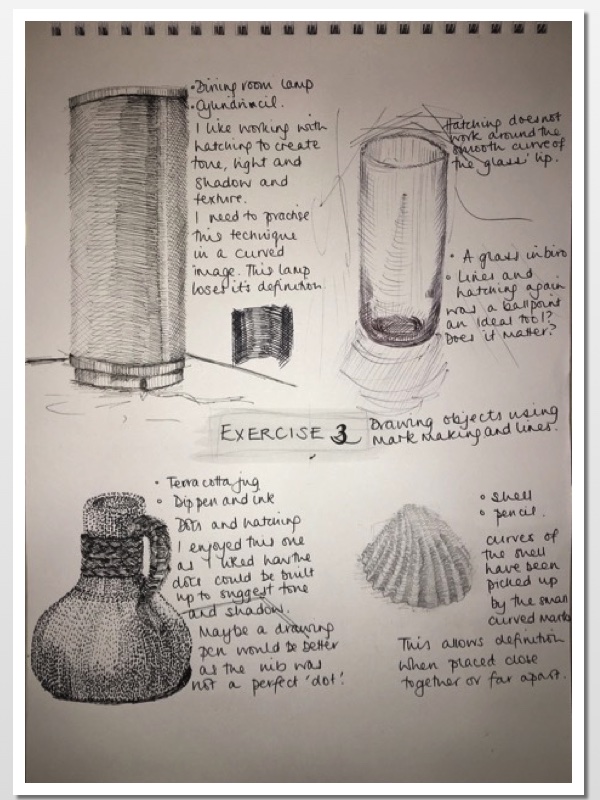 • Dining room lamp
• Cylindrincil.
I like working with
hatching to create
tone, light and
shadow and
texture.
I need to practise
this technique
in a curved
image. This lamp
loses it's definition.
Hatching does not
work around the
smooth curve of
the glass' lip.
• A glass in biro
• Lines and
hatching again
was a ballpoint
an ideal tool?
Does it matter?
EXERCISE 3
Drawing objects using
mark making and lines.
• Terracotta jug
• Dip pen and ink
Dots and hatching
I enjoyed this one
as I liked how the
dots could be built
up to suggest tone
and shadow.
Maybe a drawing
pen would be better
as the nib was
not a perfect 'dot'.
• Shell
• pencil.
curves of
the shell
have been
picked up
by the small
curved marks
This allows definition
when placed close
together or far apart.